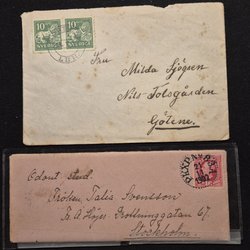 10 10
SVERIGE SVERIGE
Fru
Milda Sjögren
Nils-Tolsgården
Götene.
Odont Stud.
Fröken Talis Svensson
Drottninggatan 67.
Stockholm.